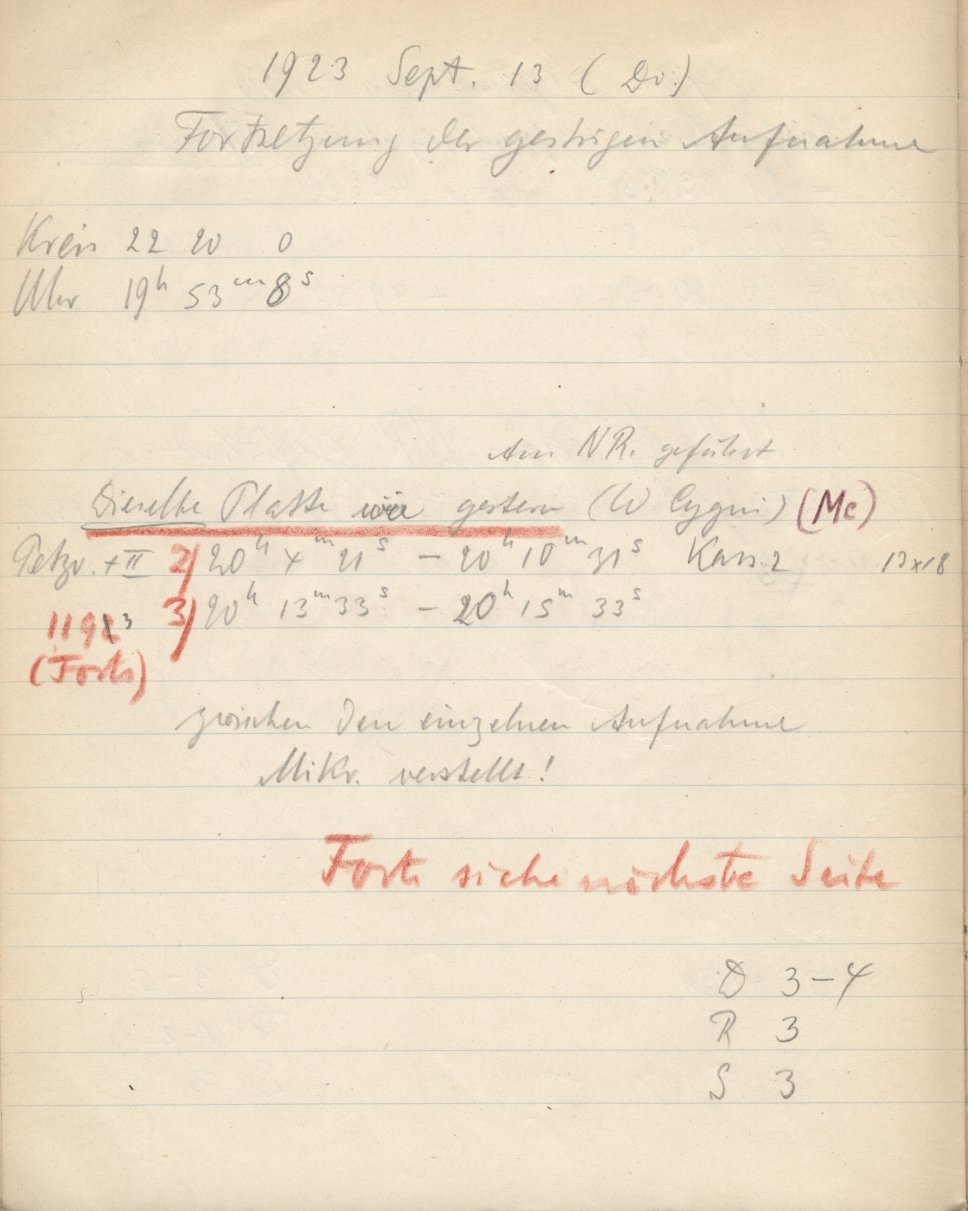 1923 Sept. 13 (Do.)
Fortsetzung der gestrigen Aufnahme
Kreis 22 20 0
Uhr 19h 53m 8s
Am NR. geführt
Dieselbe Platte wie gestern (W Cygni) (Mc)
Petzv. + II 2) 20h 4m 21s – 20h 10m 31s Kass. 2 13x18
1193 3) 20h 13m 33s – 20h 15m 33s
(Forts)
zwischen den einzelnen Aufnahme
Mikr. verstellt!
Forts siehe nächste Seite
D 3–4
R 3
S 3